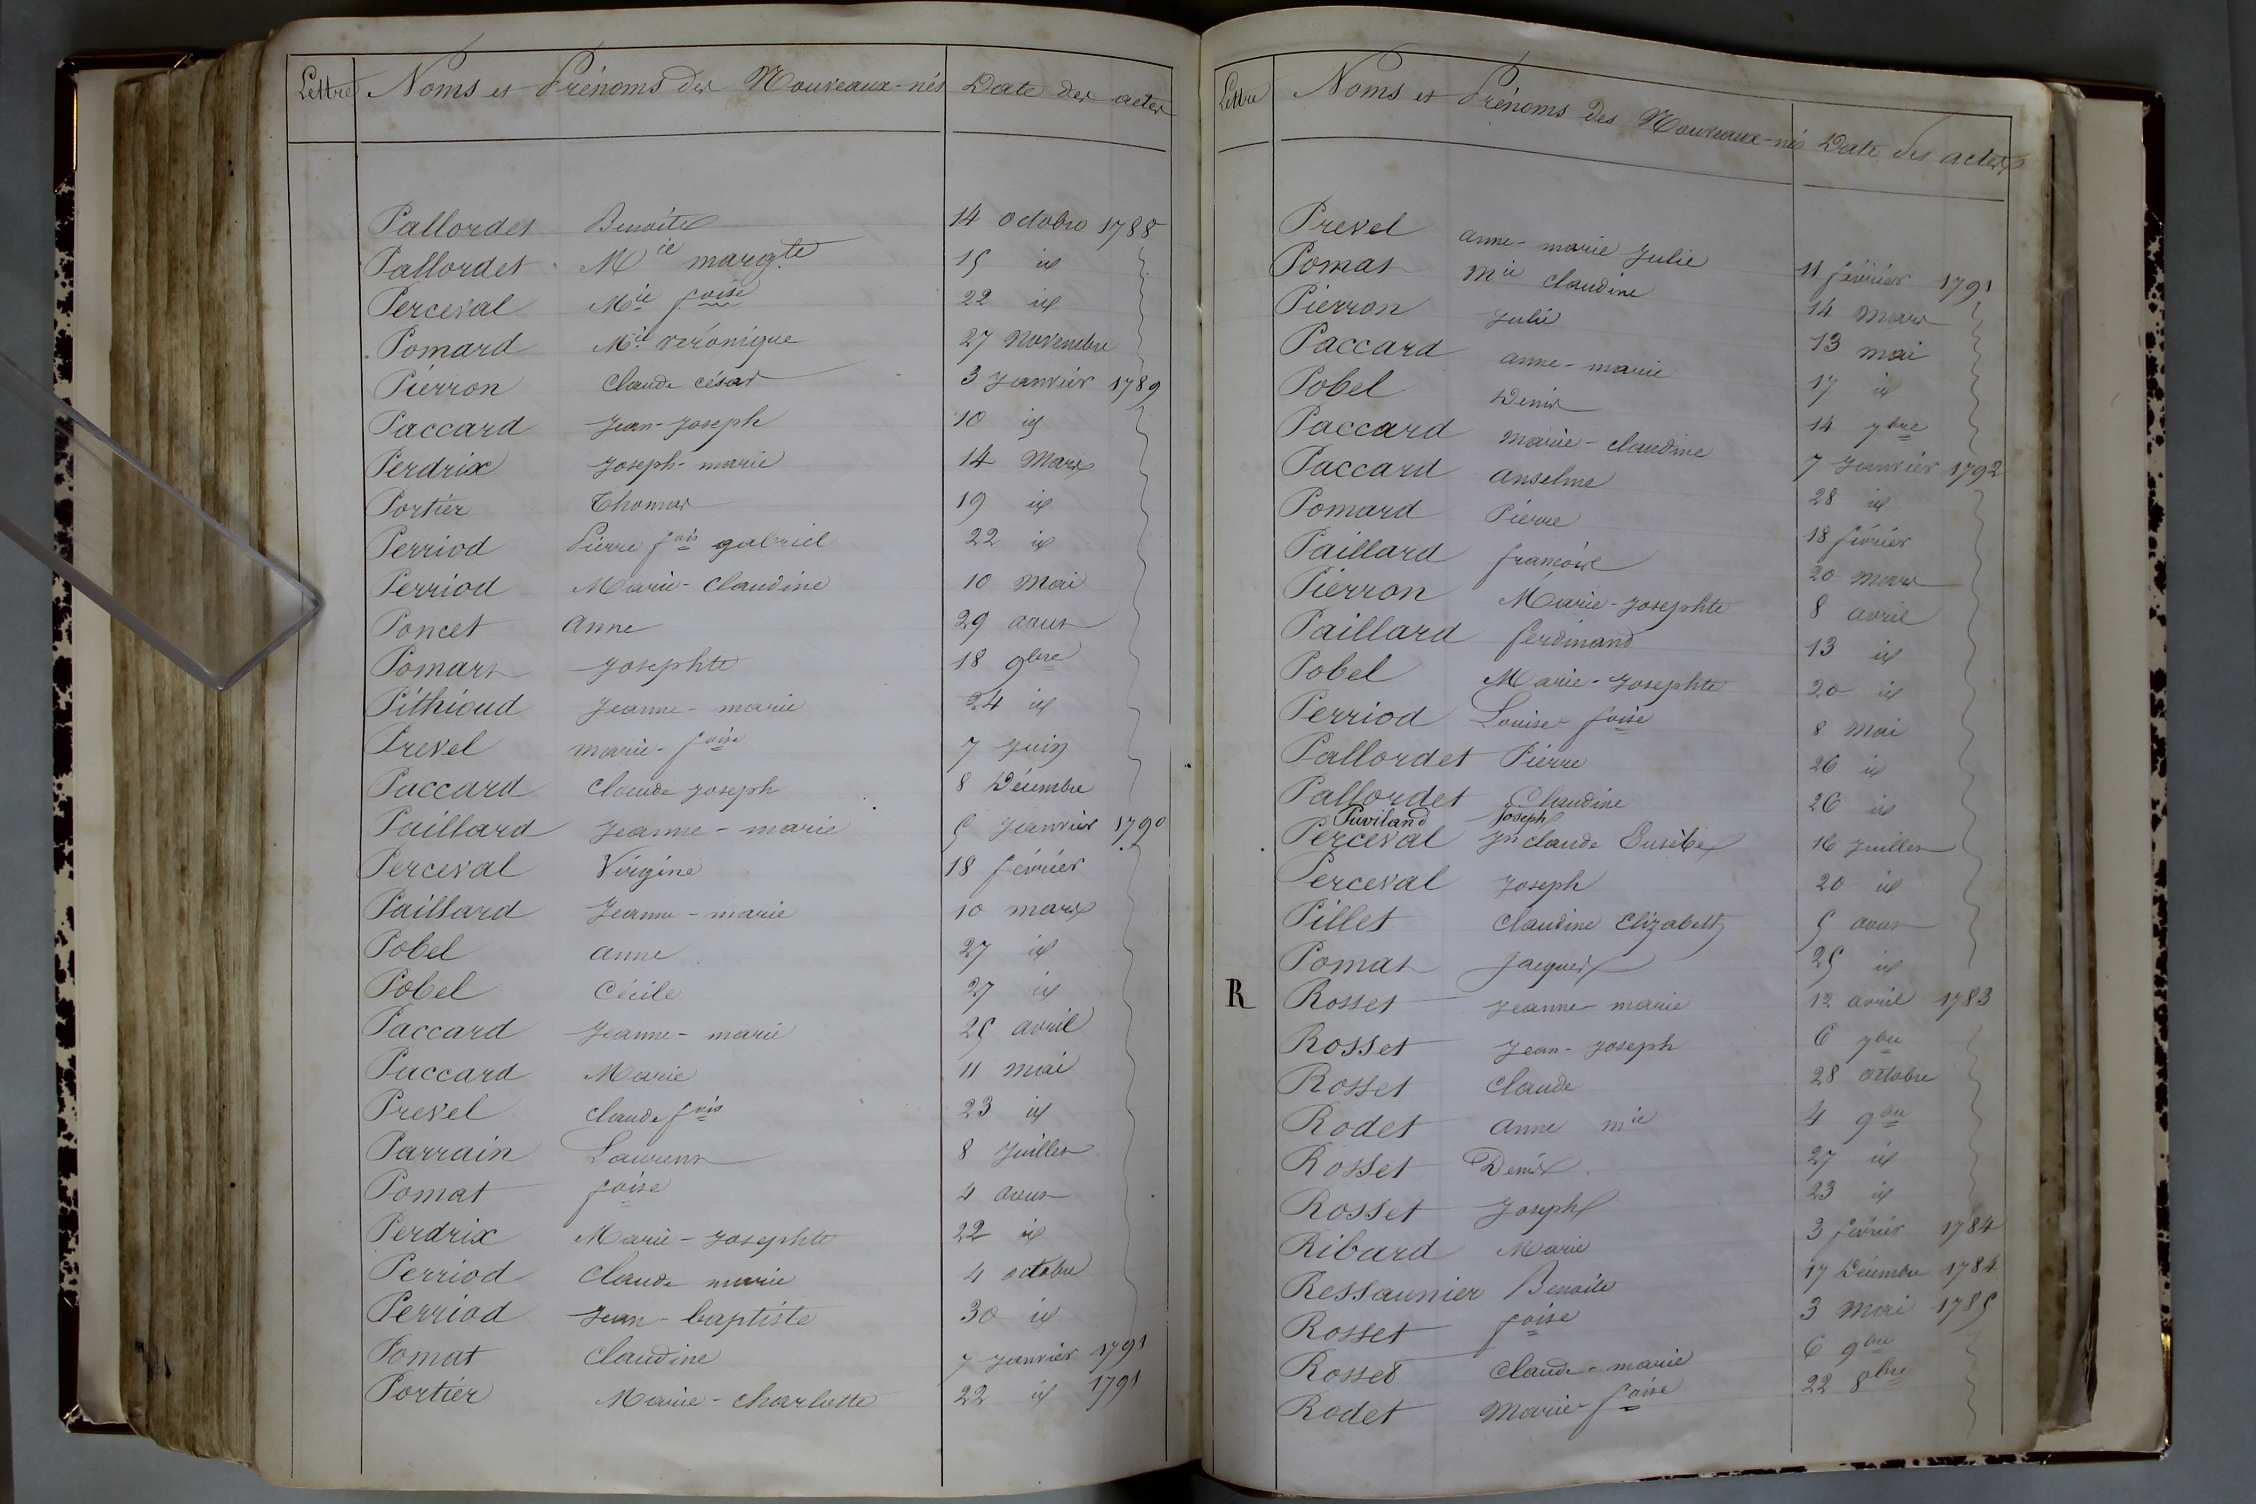 Lettre Noms et Prénoms des Nouveaux-nés Date des actes
Pallordet Benoite 14 octobre 1788
Pallordet Mie margte 15 id
Perceval Mie foise 22 id
Pomard Mie véronique 27 Novembre
Pierron Claude césar 3 Janvier 1789
Paccard Jean-Joseph 10 id
Perdrix Joseph-marie 14 Mars
Portier Thomas 19 id
Perriod Pierre fois gabriel 22 id
Perriod Marie-Claudine 10 Mai
Poncet anne 29 aout
Pomart Josephte 18 9bre
Pithioud Jeanne-marie 24 id
Prevel marie-foise 7 Juin
Paccard Claude Joseph 8 Décembre
Paillard Jeanne-marie 5 Janvier 1790
Perceval Virgine 18 février
Paillard Jeanne-marie 10 mars
Pobel anne 27 id
Pobel Cécile 27 id
Paccard Jeanne-marie 25 avril
Paccard Marie 11 mai
Prevel Claude fois 23 id
Parrain Laurent 8 Juillet
Pomat foise 4 aout
Perdrix Marie-Josephte 22 id
Perriod Claude marie 4 octobre
Perriod Jean-baptiste 30 id
Pomat Claudine 7 Janvier 1791
Portier Marie-Charlotte 22 id 1791
Lettre Noms et Prénoms des Nouveaux-nés Date des actes
Prevel anne-marie Julie 11 février 1791
Pomat Mie Claudine 14 Mars
Pierron Julie 13 mai
Paccard anne-marie 17 id
Pobel Denis 14 7bre
Paccard Marie-Claudine 7 Janvier 1792
Paccard anselme 28 id
Pomard Pierre 18 février
Paillard francois 20 mars
Pierron Marie-Josephte 8 avril
Paillard ferdinand 13 id
Pobel Marie-Josephte 20 id
Perriod Louise foise 8 Mai
Pallordet Pierre 26 id
Pallordet Claudine 26 id
Puviland Joseph
Perceval Jn Claude Eusèbe 16 Juillet
Perceval Joseph 20 id
Pillet Claudine Elizabeth 5 aout
Pomat Jacques 25 id
R Rosset Jeanne-marie 12 avril 1783
Rosset Jean-Joseph 6 7bre
Rosset Claude 28 octobre
Rodet anne mie 4 9bre
Rosset Denis 27 id
Rosset Joseph 23 id
Ribard Marie 3 février 1784
Ressaunier Benoite 17 Décembre 1784
Rosset foise 3 Mai 1785
Rosset Claude-marie 6 9bre
Rodet Marie-foise 22 8bre